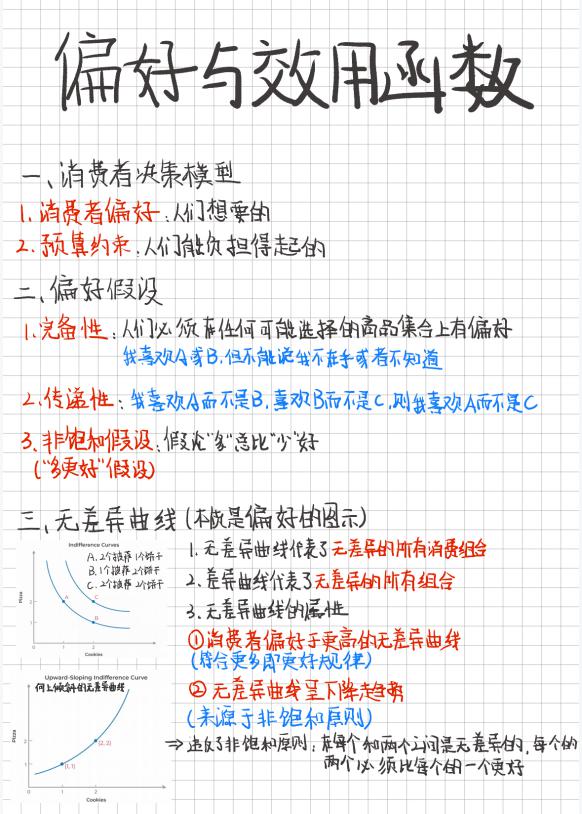 偏好与效用函数
一、消费者决策模型
1.消费者偏好:人们想要的
2.预算约束:人们能负担得起的
二、偏好假设
1.完备性:人们必须在任何可能选择的商品集合上有偏好
我喜欢A或B,但不能说我不在乎或者不知道
2.传递性:我喜欢A而不是B,喜欢B而不是C,则我喜欢A而不是C
3.非饱和假设:假设"多"总比"少"好
("多更好"假设)
三、无差异曲线(本质是偏好的图示)
Indifference Curves
A.2个披萨1个饼干
B.1个披萨2个饼干
C.2个披萨2个饼干
Pizza
2
1
A
C
B
1
2
Cookies
1.无差异曲线代表了无差异的所有消费组合
2.差异曲线代表了无差异的所有组合
3.无差异曲线的属性
①消费者偏好于更高的无差异曲线
(符合更多即更好规律)
②无差异曲线呈下降趋势
(来源于非饱和原则)
⇒违反了非饱和原则:在每个和两个之间是无差异的,每个的
两个必须比每个的一个更好
Upward-Sloping Indifference Curve
向上倾斜的无差异曲线
Pizza
2
1
(2, 2)
(1, 1)
0
1
2
Cookies